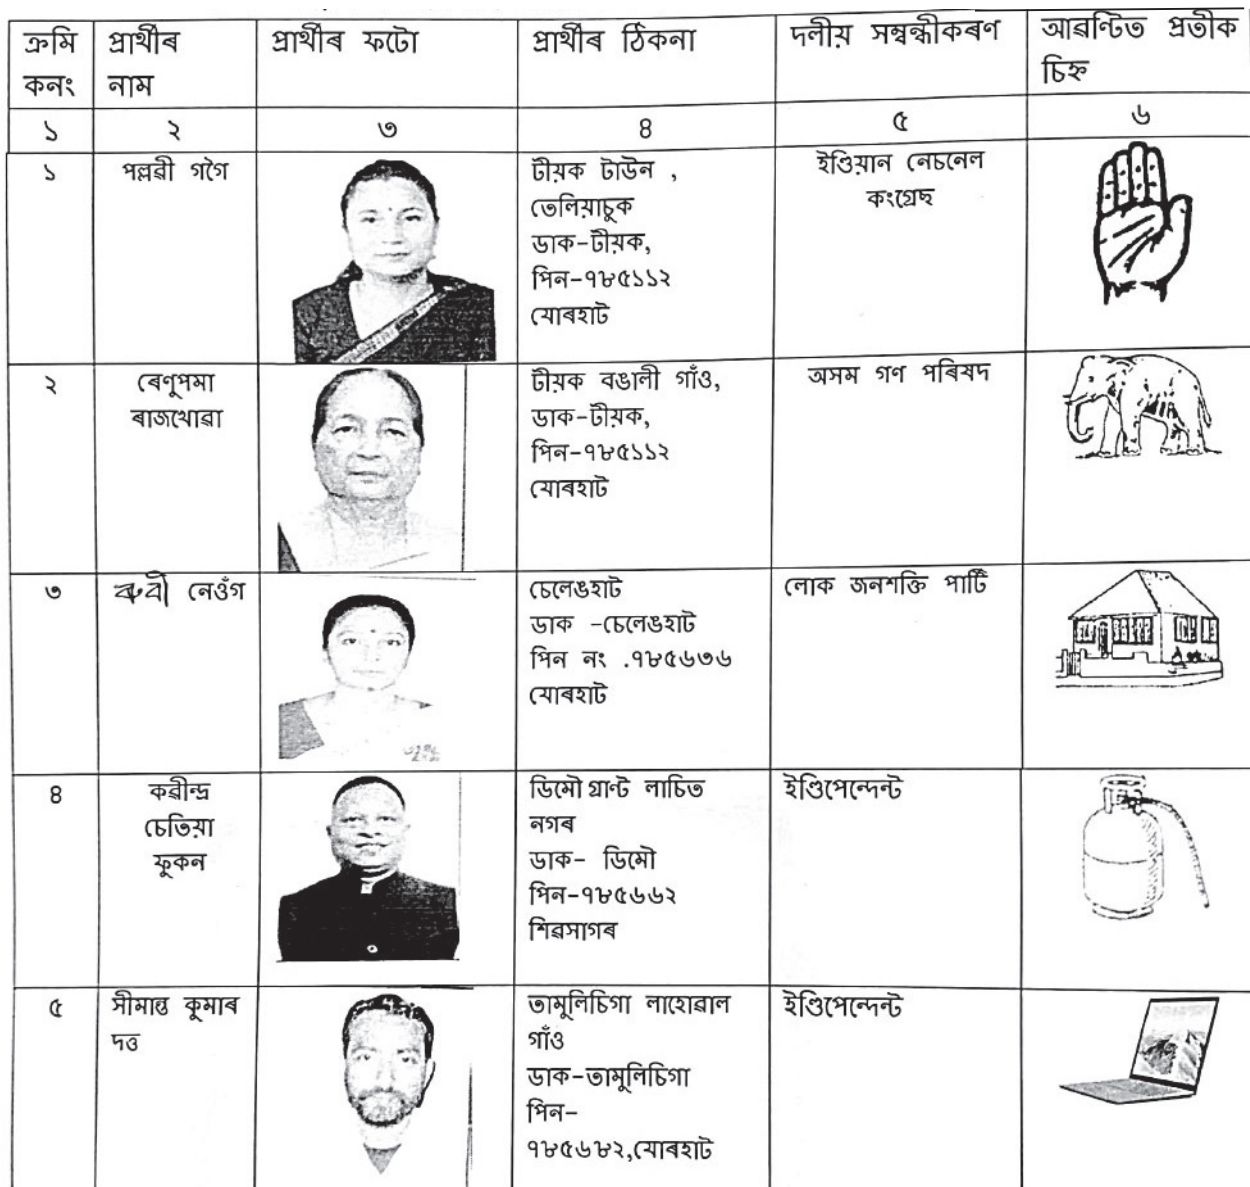 ক্ৰমি কনং
প্ৰাৰ্থীৰ নাম
প্ৰাৰ্থীৰ ফটো
প্ৰাৰ্থীৰ ঠিকনা
দলীয় সম্বন্ধীকৰণ
আৱণ্টিত প্ৰতীক চিহ্ন
১ ২ ৩ ৪ ৫ ৬
১
পল্লৱী গগৈ
টীয়ক টাউন ,
তেলিয়াচুক
ডাক-টীয়ক,
পিন-৭৮৫১১২
যোৰহাট
ইণ্ডিয়ান নেচনেল
কংগ্ৰেছ
২
ৰেণুপমা
ৰাজখোৱা
টীয়ক বঙালী গাঁও,
ডাক-টীয়ক,
পিন-৭৮৫১১২
যোৰহাট
অসম গণ পৰিষদ
৩
ৰুবী নেওঁগ
চেলেঙহাট
ডাক -চেলেঙহাট
পিন নং .৭৮৫৬৩৬
যোৰহাট
লোক জনশক্তি পাৰ্টি
৪
কৱীন্দ্ৰ
চেতিয়া
ফুকন
ডিমৌ গ্ৰাণ্ট লাচিত
নগৰ
ডাক- ডিমৌ
পিন-৭৮৫৬৬২
শিৱসাগৰ
ইণ্ডিপেন্দেন্ট
৫
সীমান্ত কুমাৰ
দত্ত
তামুলিচিগা লাহোৱাল
গাঁও
ডাক-তামুলিচিগা
পিন-
৭৮৫৬৮২,যোৰহাট
ইণ্ডিপেন্দেন্ট